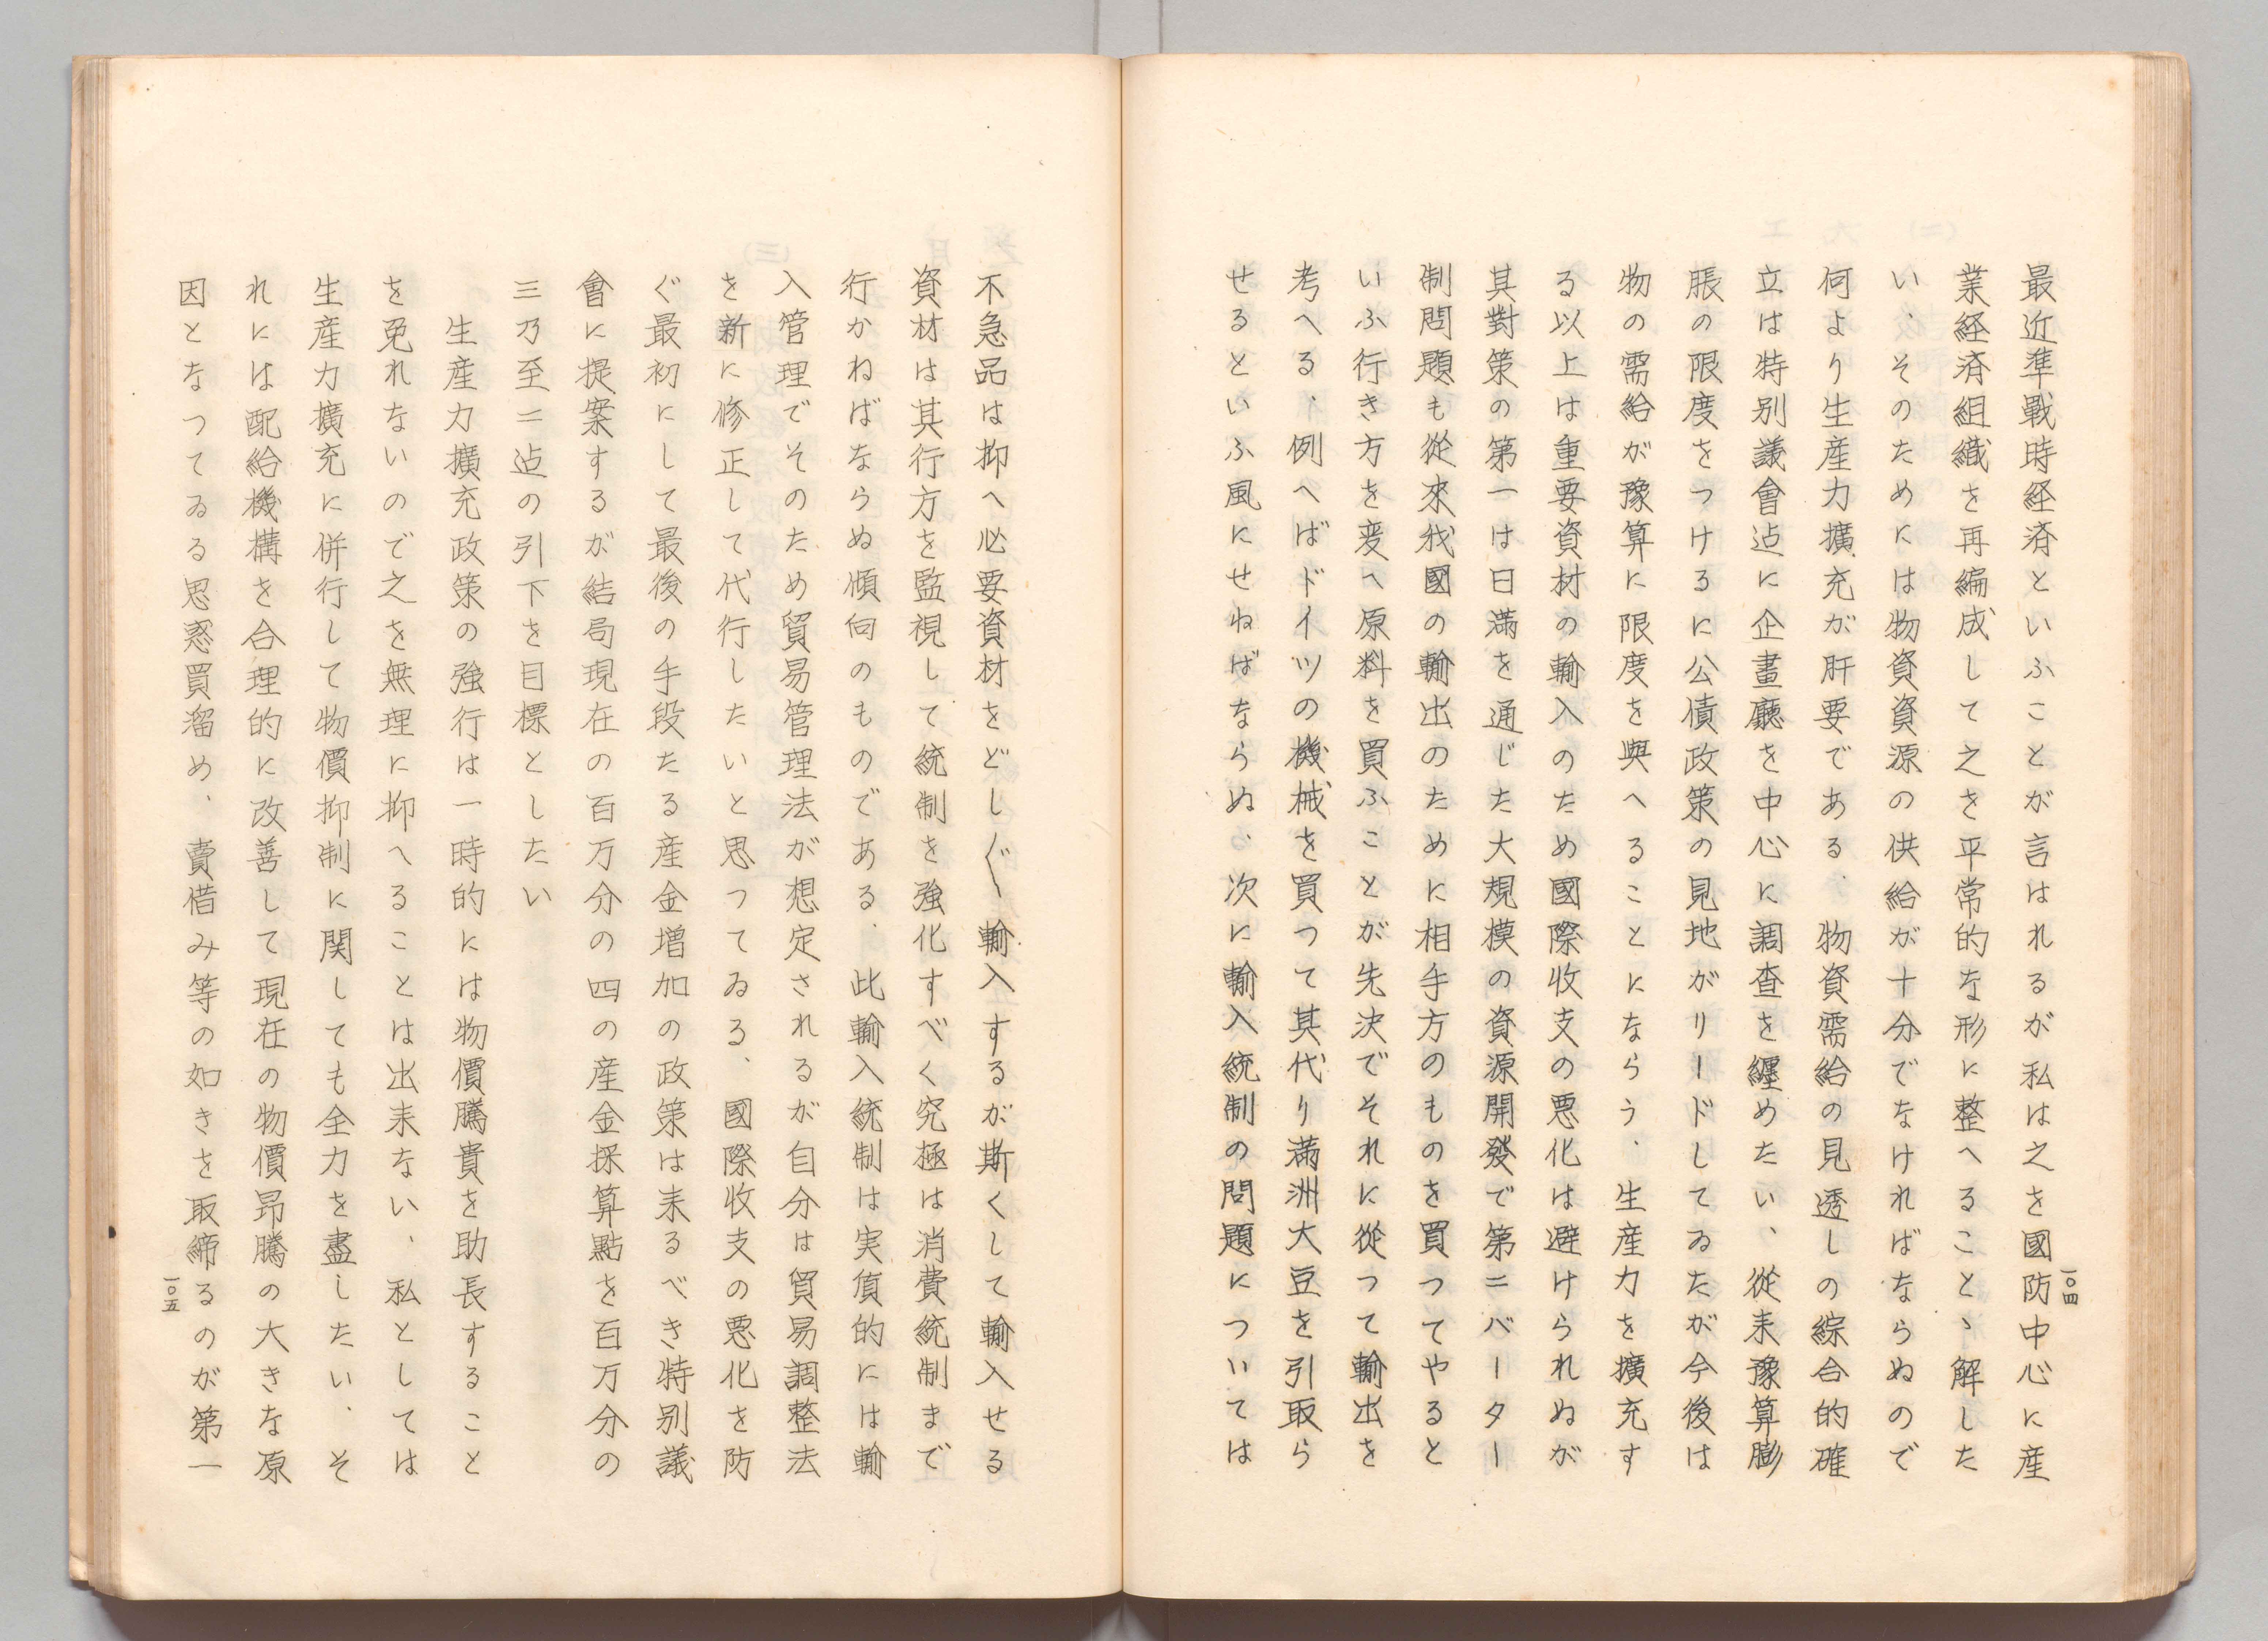 最近準戰時経済といふことが言はれるが私は之を國防中心に産
業経済組織を再編成して之を平常的な形に整へること、解した
い、そのためには物資資源の供給が十分でなければならぬので
何より生産力擴充が肝要である、物資需給の見透しの綜合的確
立は特別議會迠に企畫廳を中心に調査を纒めたい、從来豫算膨
脹の限度をつけるに公債政策の見地がリードしてゐたが今後は
物の需給が豫算に限度を與へることにならう、生産力を擴充す
る以上は重要資材の輸入のため國際收支の悪化は避けられぬが
其對策の第一は日満を通じた大規模の資源開發で第二バーター
制問題も從來我國の輸出のために相手方のものを買つてやると
いふ行き方を変へ原料を買ふことが先決でそれに從つて輸出を
考へる、例へばドイツの機械を買つて其代り満洲大豆を引取ら
せるといふ風にせねばならぬ、次に輸入統制の問題については
一〇四
不急品は抑へ必要資材をどし〴〵輸入するが斯くして輸入せる
資材は其行方を監視して統制を強化すべく究極は消費統制まで
行かねばならぬ傾向のものである、此輸入統制は実質的には輸
入管理でそのため貿易管理法が想定されるが自分は貿易調整法
を新に修正して代行したいと思つてゐる、國際收支の悪化を防
ぐ最初にして最後の手段たる産金増加の政策は来るべき特別議
會に提案するが結局現在の百万分の四の産金採算點を百万分の
三乃至二迠の引下を目標としたい
生産力擴充政策の強行は一時的には物價騰貴を助長すること
を免れないので之を無理に抑へることは出来ない、私としては
生産力擴充に併行して物價抑制に関しても全力を盡したい、そ
れには配給機構を合理的に改善して現在の物價昂騰の大きな原
因となつてゐる思惑買溜め、賣惜み等の如きを取締るのが第一
一〇五